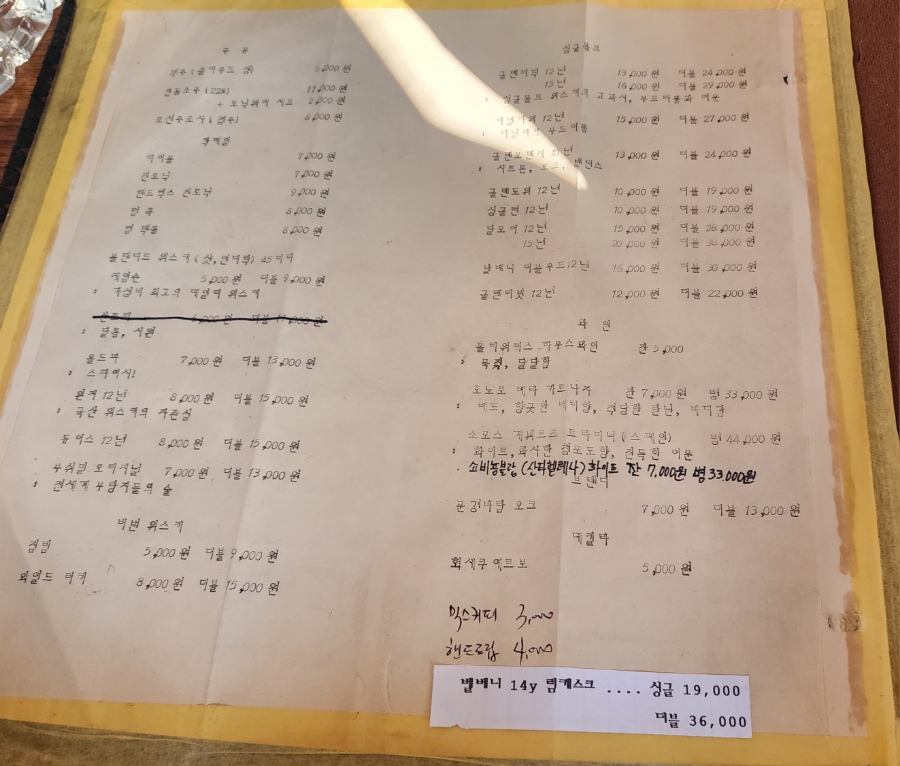 주 류
맥주 (클라우드 생) 6,000원
안동소주(22%) 11,000원
+ 토닉워터 세트 2,000원
6,000원
칵테일
하이볼 7,000원
진토닉 7,000원
핸드릭스 진토닉 9,000원
밤 쥬 8,000원
밤 8,000원
블렌디드 위스키 45미리
제임슨 5,000원 더블 9,000원
: 가성비 최고의 데일리 위스키
: 달콤, 시원
올드파 7,000원 더블 13,000원
: 스파이시!
윈저 12년 8,000원 더블 15,000원
: 국산 위스키의 자존심
듀어스 12년 8,000원 더블 15,000원
부쉬밀 오리지널 7,000원 더블 13,000원
: 전세계 부랑자들의 술
버번 위스키
짐빔 5,000원 더블 9,000원
와일드 터키 8,000원 더블 15,000원
싱글몰트
글렌피딕 12년 13,000원 더블 24,000원
15년 16,000원 더블 29,000원
: 싱글몰트 위스키의 교과서, 부드러움과 여운
12년 15,000원 더블 27,000원
: 부드러움
글렌모렌지 13,000원 더블 24,000원
: 시트론, 오크, 밸런스
글렌드쉬 12년 10,000원 더블 19,000원
싱글턴 12년 10,000원 더블 19,000원
달모어 12년 15,000원 더블 28,000원
15년 20,000원 더블 38,000원
발베니 더블우드12년 16,000원 더블 30,000원
글렌리벳 12년 12,000원 더블 22,000원
와 인
하우스와인 잔 5,000
: 묵직, 달달함
오노로 베라 가르나챠 잔 7,000원 병 33,000원
: 레드, 향긋한 베리향, 적당한 탄닌, 바디감
소모스 게뷔르츠 트라미너(스페인) 병 44,000원
: 화이트, 화사한 청포도향, 진득한 여운
. 소비뇽블랑 (산타헬레나) 화이트 잔 7,000원 병 33,000원
브랜디
문경바람 오크 7,000원 더블 13,000원
데킬라
호세쿠엘보 5,000원
믹스커피 3,000
핸드드립 4,000
벨베니 14y 럼캐스크 .... 싱글 19,000
더블 36,000